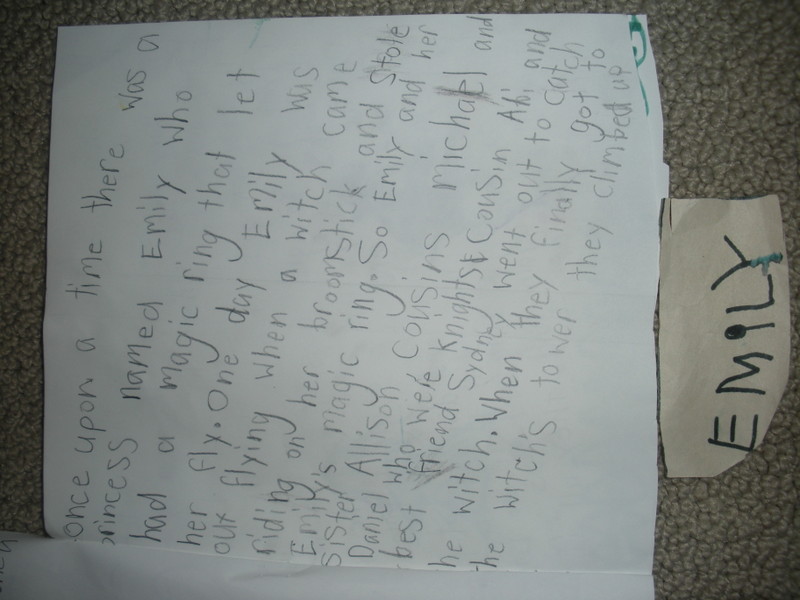 Once upon a time there was a
princess named Emily who
had a magic ring that let
her fly. One day Emily was
out flying when a witch came
riding on her broomstick and stole
Emily's magic ring. So Emily and her
sister Allison cousins Michael and
Daniel who were Knights Cousin Abi and
best friend Sydney went out to catch
the witch. When they finally got to
the witch's tower they climbed up
EMiLY